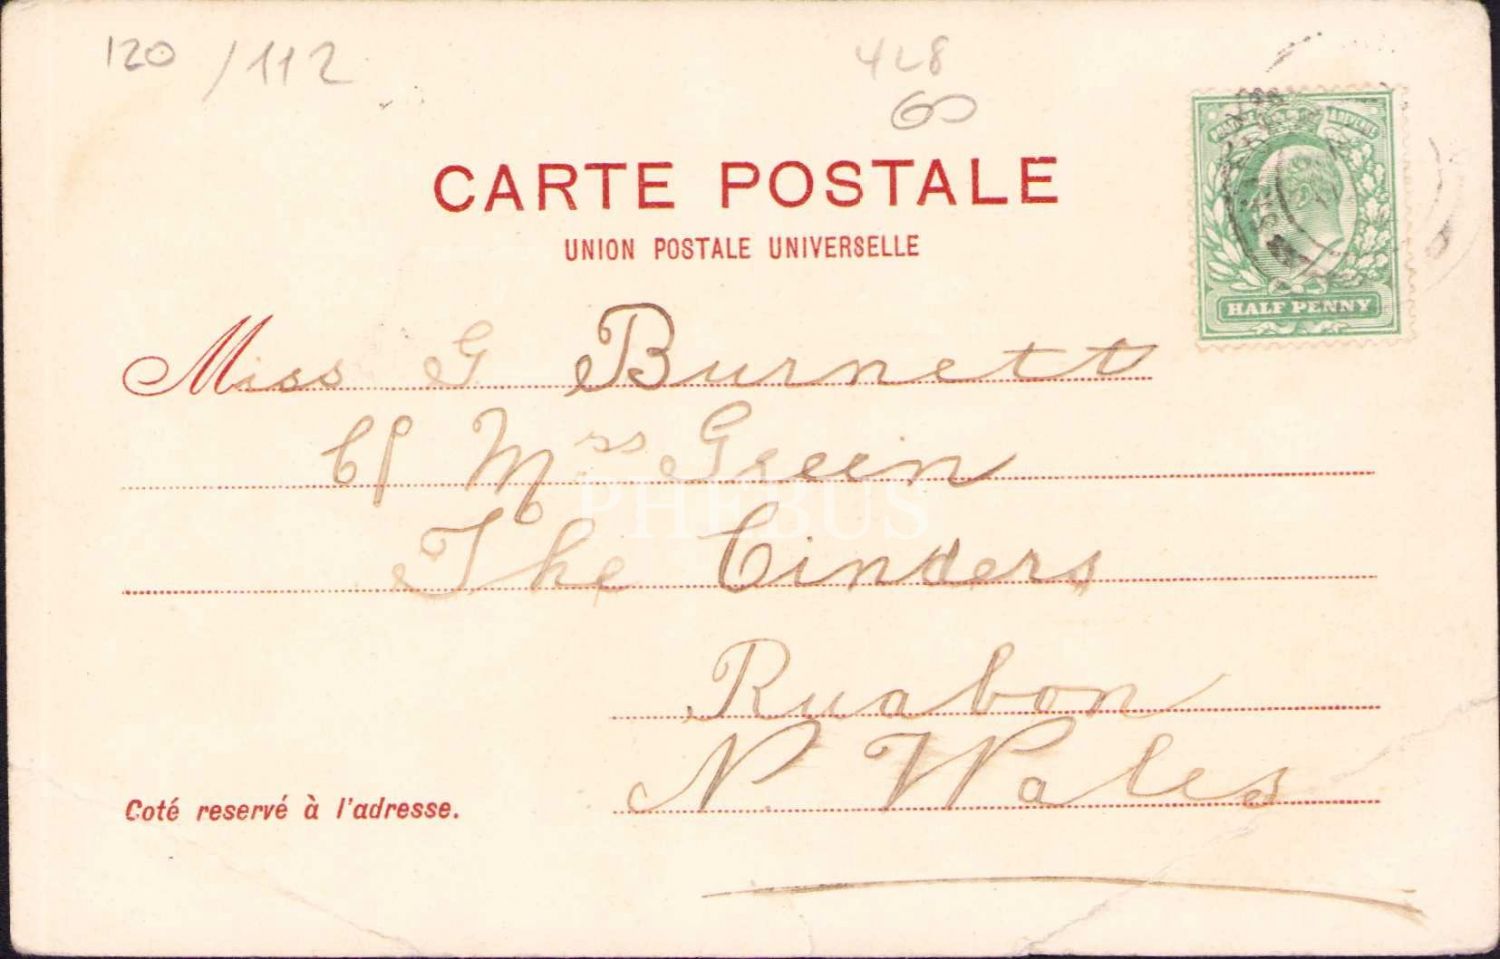 120 /112
428
60
CARTE POSTALE
UNION POSTALE UNIVERSELLE
HALF PENNY
Miss G Burnett
c/o Mrs Green
PHEBUS
The Cinders
Ruabon
N. Wales
Coté reservé à l'adresse.